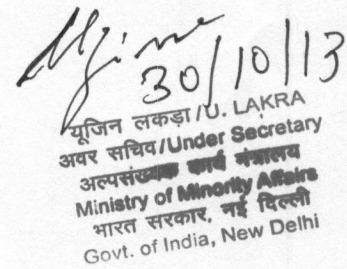 30/10/13
यूजिन लकड़ा/U. LAKRA
अवर सचिव/Under Secretary
अल्पसंख्यक कार्य मंत्रालय
Ministry of Minority Affairs
भारत सरकार, नई दिल्ली
Govt. of India, New Delhi